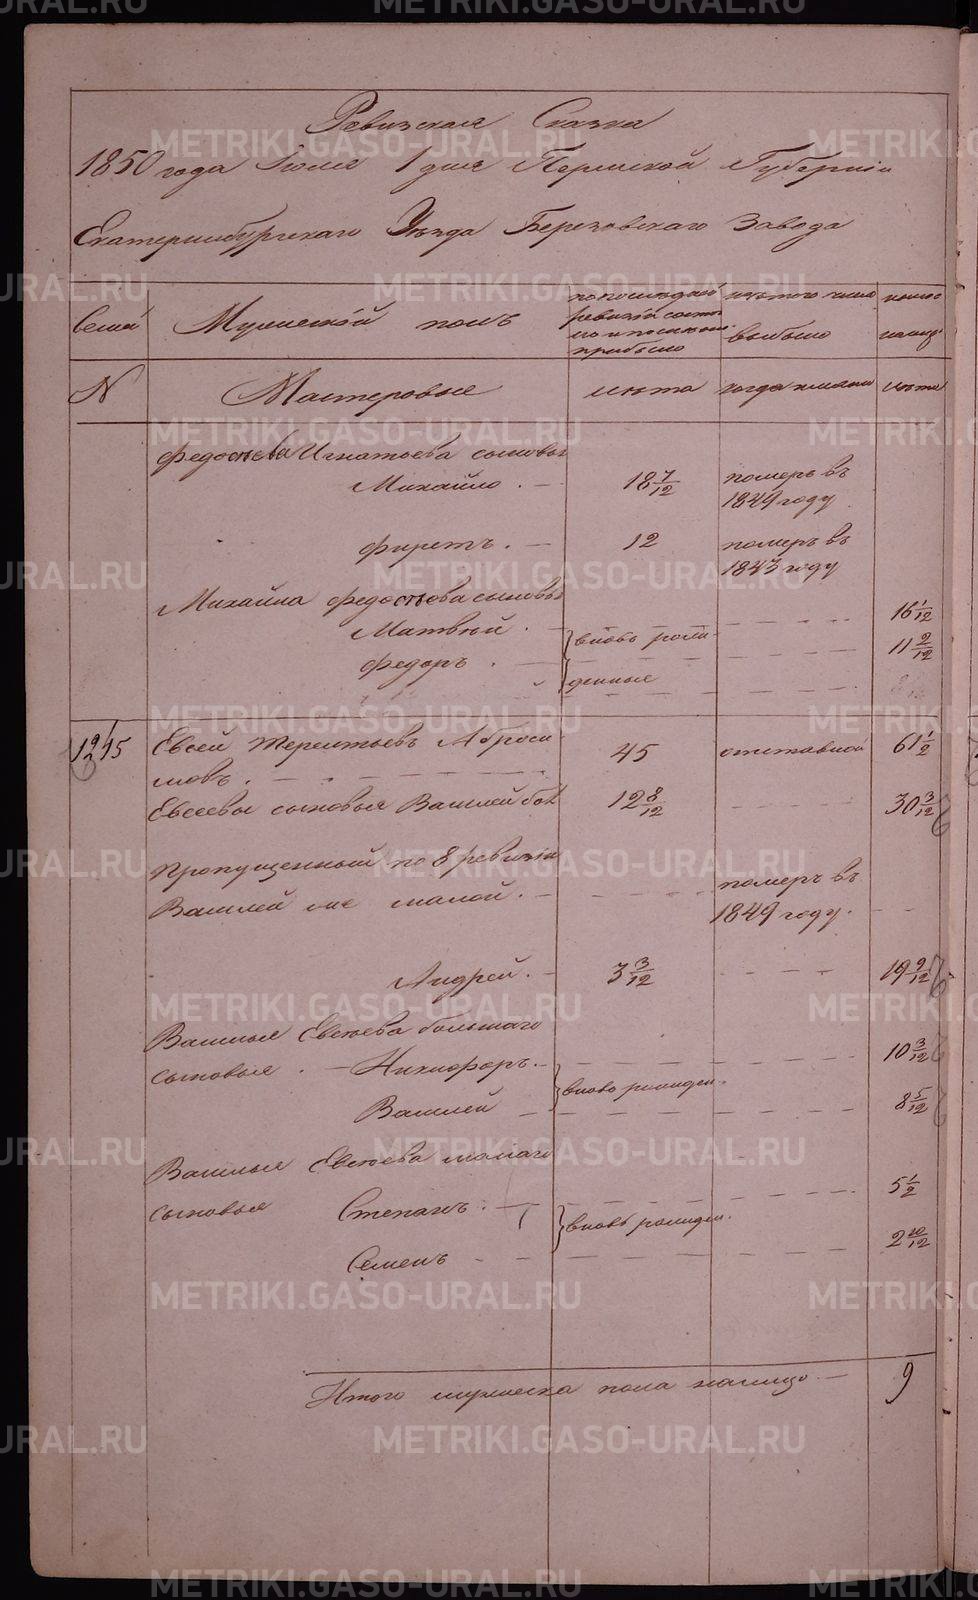 Ревизская Сказка
1850 года Июля 1 дня Пермской Губернии
Екатеринбургскаго Уѣзда Березовскаго Завода
Семей
Мужеской полъ
по последней ревизiи состояло и после того прибыло
изъ того числа выбыло
ныне на лицо
N
Мастеровые
лѣта
когда именно
лѣта
Федосѣева Игнатьева сыновья
Михайло . — 18 7/12 померъ въ 1849 году
Фирстъ . — 12 померъ въ 1843 году
Михайла Федосѣева сыновья
Матвѣй . 16 1/12
вновь рож-
Федоръ . 11 2/12
денные
1215 Евсей Терентьевъ Аброси-
мовъ . 45 отставной 61 1/2
Евсеевы сыновья Василей бол 12 8/12 30 3/12
Пропущенный по 8 ревизiи
Василей же малой . — померъ въ 1849 году .
Андрей . — 3 3/12 19 9/12
Василья Евсѣева большаго
сыновья . — Никифоръ . — 10 3/12
вновь рожден .
Василей 8 5/12
Василья Евсѣева малаго
сыновья Степанъ . 5 1/2
вновь рожден .
Семенъ 2 10/12
Итого мужеска пола налицо — 9
METRIKI.GASO-URAL.RU